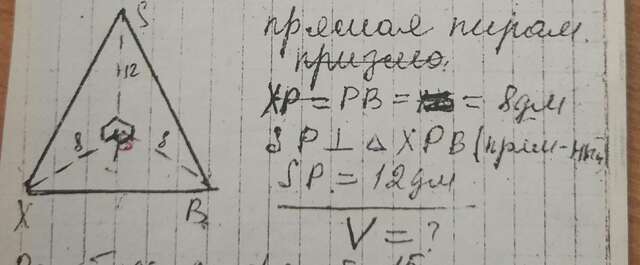 S
12
8
8
P
X
B
прямая пирам.
призмо.
XP = PB = = 8дм
SP ⊥ △ XPB (прям-ный)
SP = 12дм
V = ?